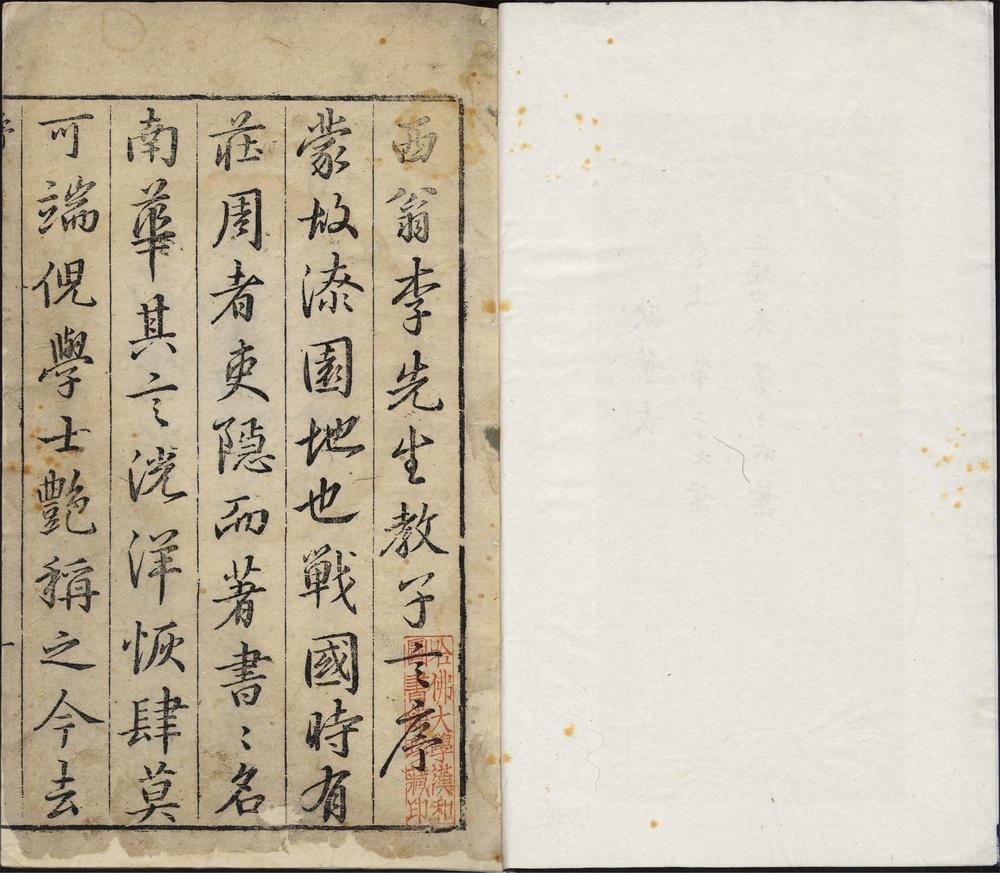 酉翁李先生教子言序
蒙故漆園地也戰國時有
莊周者吏隱而著書〻名
南華其言洸洋恢肆莫
可端倪學士艷稱之今去
哈佛大學漢和
圖書館珍藏印